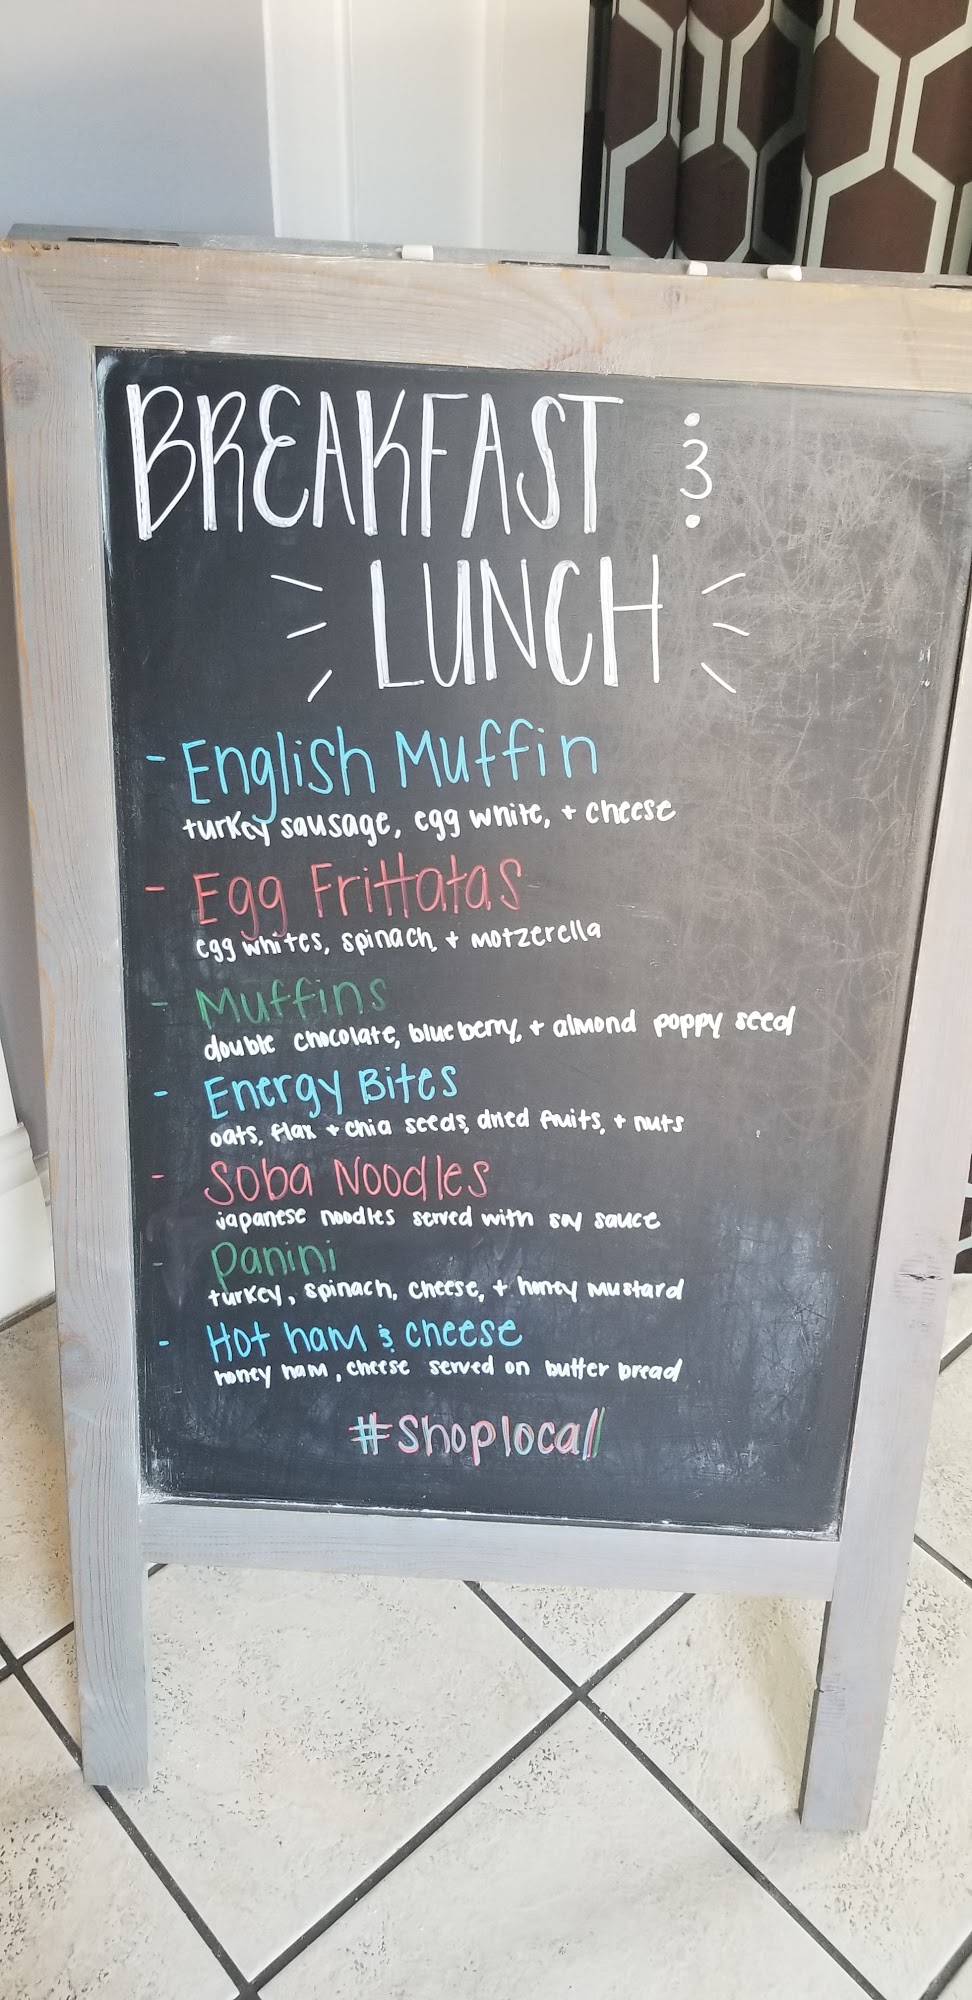 BREAKFAST &
LUNCH
- English Muffin
turkey sausage, egg white, + cheese
- Egg Frittatas
egg whites, spinach, + motzerella
- Muffins
double chocolate, blueberry, + almond poppy seed
- Energy Bites
oats, flax + chia seeds, dried fruits, + nuts
- Soba Noodles
japanese noodles served with soy sauce
- Panini
turkey, spinach, cheese, + honey mustard
- Hot ham & cheese
honey ham, cheese served on butter bread
#Shoplocal